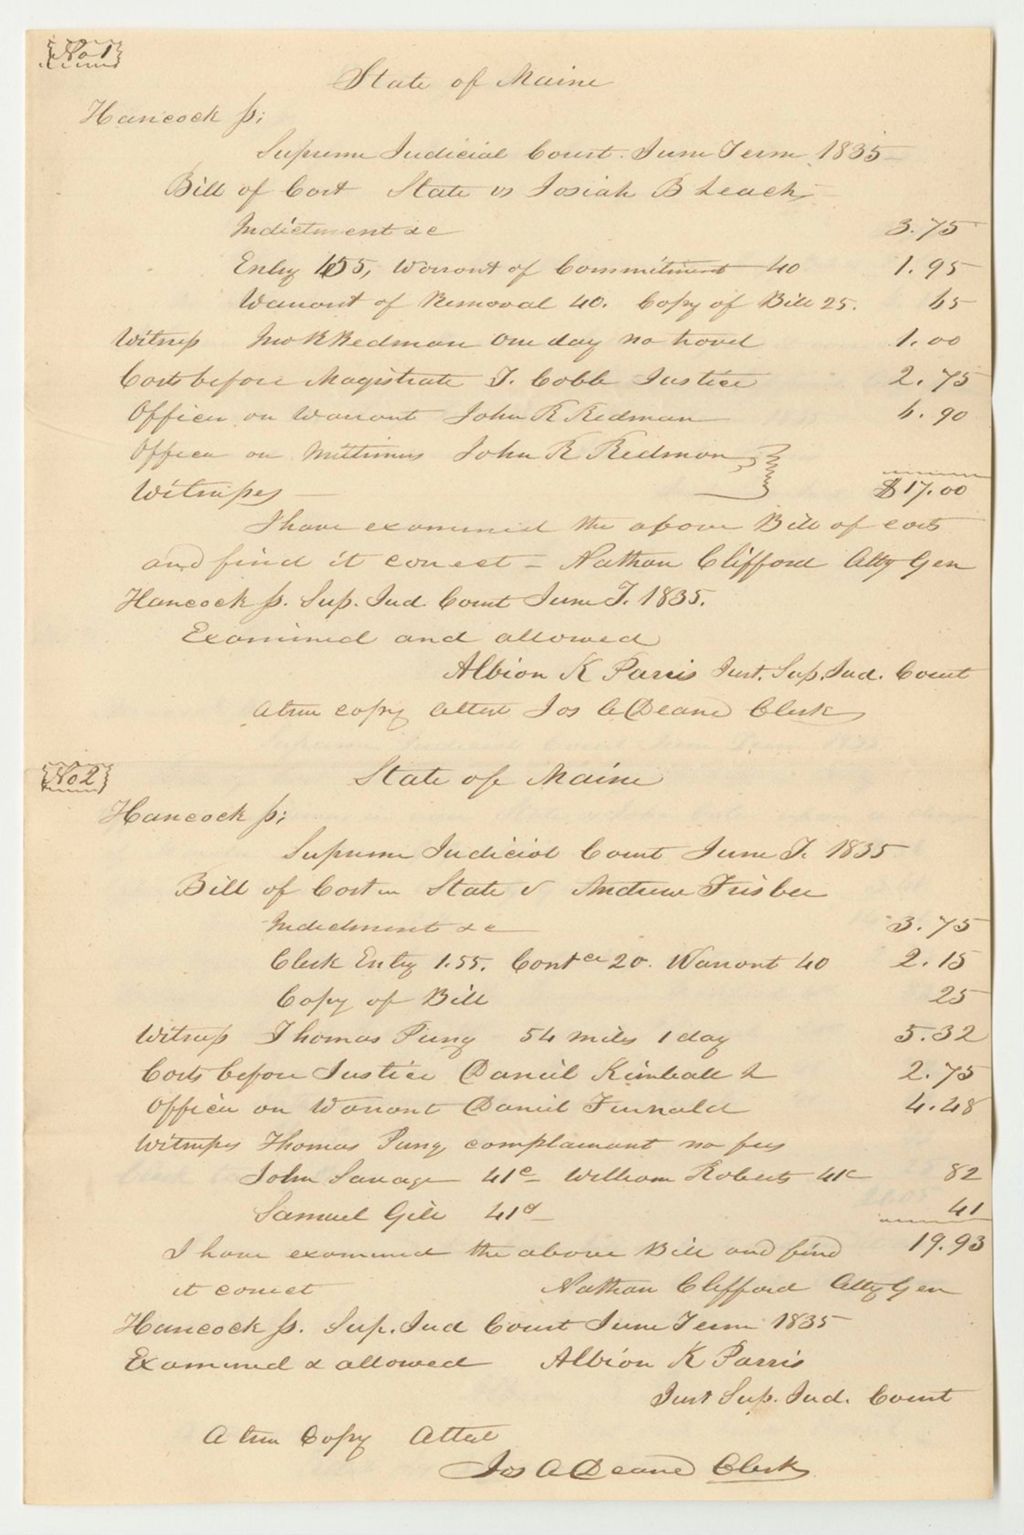 No 1
State of Maine
Hancock ss;
Supreme Judicial Court. June Term 1835
Bill of Cost State vs Josiah B Leach
Indictment &c 3.75
Entry 155, Warrant of Commitment 40 1.95
Warrant of Removal 40. Copy of Bill 25. 65
Witness Jno R Redman one day no travel 1.00
Costs before Magistrate T. Cobb Justice 2.75
Officer on Warrant John R Redman 6.90
Officer on Mittimus John R Redman
Witnesses $17.00
I have examined the above Bill of costs
and find it correct - Nathan Clifford Atty Gen
Hancock ss. Sup. Jud. Court June T. 1835.
Examined and allowed
Albion K Parris Just. Sup. Jud. Court
A true copy Attest Jos A Deane Clerk
No 2
State of Maine
Hancock ss;
Supreme Judicial Court June T. 1835
Bill of Cost in State v Andrew Frisbee
Indictment &c 3.75
Clerk Entry 1.55. Contce 20. Warrant 40 2.15
Copy of Bill 25
Witness Thomas 54 miles 1 day 5.32
Costs before Justice Daniel Kimball 2.75
Officer on Warrant Daniel Furnald 4.48
Witnesses Thomas complainant no fees
John Savage 41c William Roberts 41c 82
Samuel Gile 41c 41
I have examined the above Bill and find 19.93
it correct Nathan Clifford Atty Gen
Hancock ss. Sup. Jud Court June Term 1835
Examined & allowed Albion K Parris
Just Sup. Jud. Court
A true Copy Attest
Jos A Deane Clerk